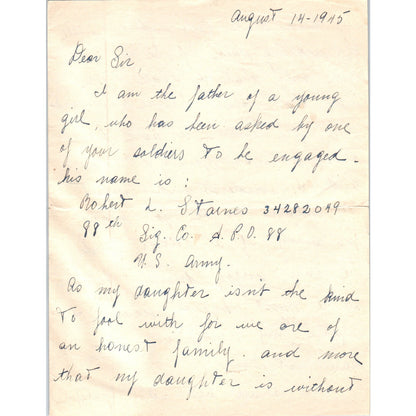 August 14-1945
Dear Sir,
I am the father of a young
girl, who has been asked by one
of your soldiers to be engaged.
his name is :
Robert L. Staines 34282049
88th Sig. Co. A.P.O. 88
U.S. Army.
As my daughter isn't the kind
to fool with for we are of
an honest family. and more
that my daughter is without